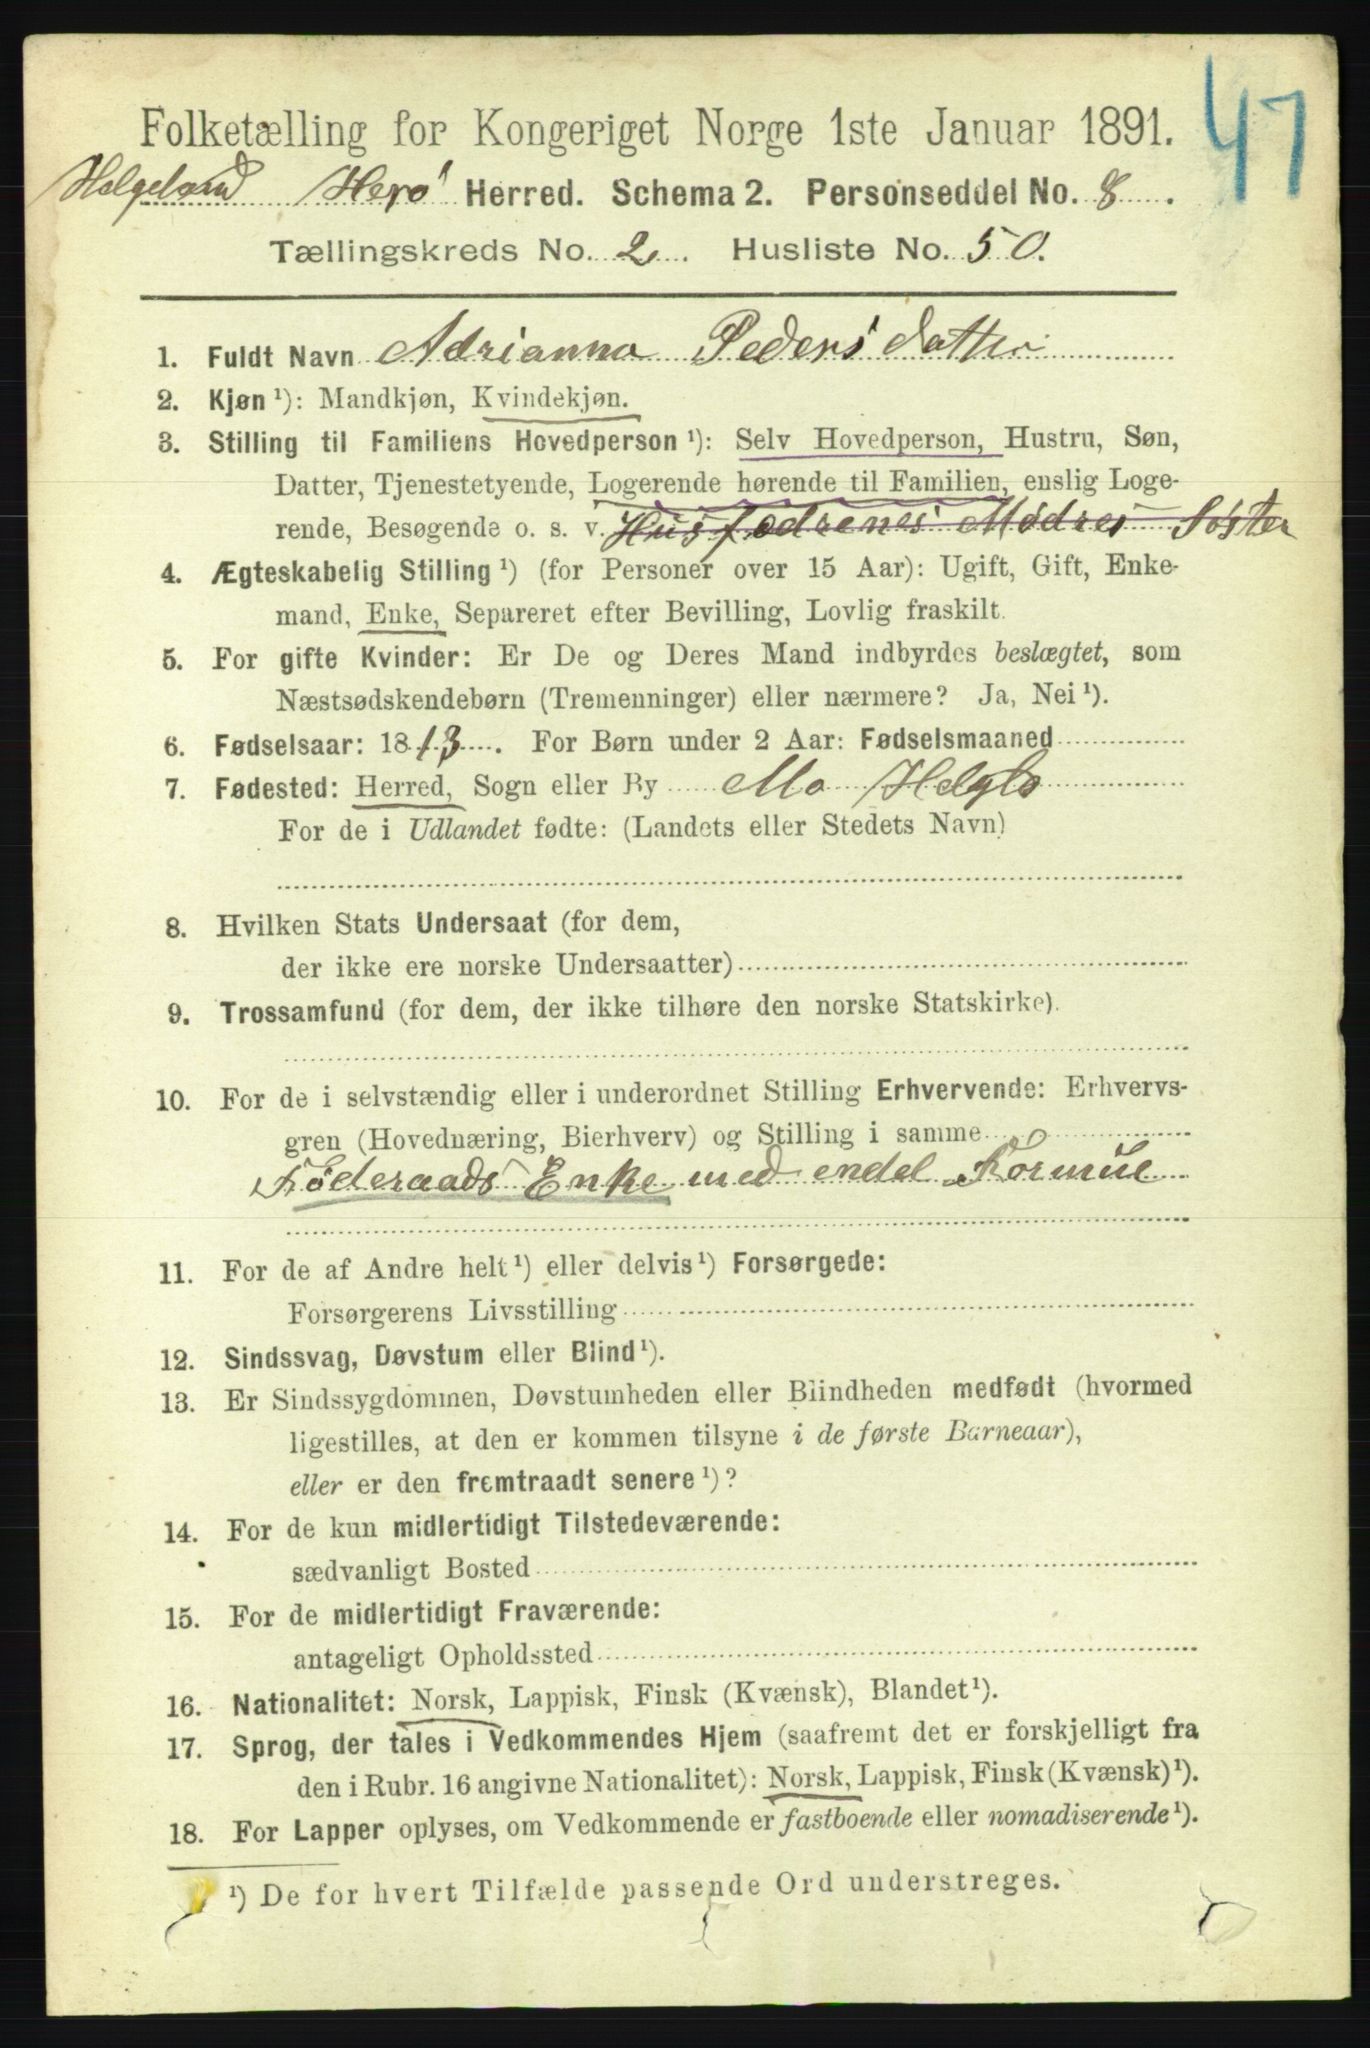 47
Folketælling for Kongeriget Norge 1ste Januar 1891.
Helgeland Herø Herred. Schema 2. Personseddel No. 8.
Tællingskreds No. 2. Husliste No. 50.
1. Fuldt Navn Adrianna Peders datter
2. Kjøn ¹): Mandkjøn, Kvindekjøn.
3. Stilling til Familiens Hovedperson ¹): Selv Hovedperson, Hustru, Søn,
Datter, Tjenestetyende, Logerende hørende til Familien, enslig Loge-
rende, Besøgende o. s. v. Husfædrenes Mødres Søster
4. Ægteskabelig Stilling ¹) (for Personer over 15 Aar): Ugift, Gift, Enke-
mand, Enke, Separeret efter Bevilling, Lovlig fraskilt.
5. For gifte Kvinder: Er De og Deres Mand indbyrdes beslægtet, som
Næstsødskendebørn (Tremenninger) eller nærmere? Ja, Nei ¹).
6. Fødselsaar: 1813. For Børn under 2 Aar: Fødselsmaaned
7. Fødested: Herred, Sogn eller By Mo Helgld
For de i Udlandet fødte: (Landets eller Stedets Navn)
8. Hvilken Stats Undersaat (for dem,
der ikke ere norske Undersaatter)
9. Trossamfund (for dem, der ikke tilhøre den norske Statskirke).
10. For de i selvstændig eller i underordnet Stilling Erhvervende: Erhvervs-
gren (Hovednæring, Bierhverv) og Stilling i samme
Føderaads Enke med endel Formue
11. For de af Andre helt ¹) eller delvis ¹) Forsørgede:
Forsørgerens Livsstilling
12. Sindssvag, Døvstum eller Blind ¹).
13. Er Sindssygdommen, Døvstumheden eller Blindheden medfødt (hvormed
ligestilles, at den er kommen tilsyne i de første Barneaar),
eller er den fremtraadt senere ¹)?
14. For de kun midlertidigt Tilstedeværende:
sædvanligt Bosted
15. For de midlertidigt Fraværende:
antageligt Opholdssted
16. Nationalitet: Norsk, Lappisk, Finsk (Kvænsk), Blandet ¹).
17. Sprog, der tales i Vedkommendes Hjem (saafremt det er forskjelligt fra
den i Rubr. 16 angivne Nationalitet): Norsk, Lappisk, Finsk (Kvænsk) ¹).
18. For Lapper oplyses, om Vedkommende er fastboende eller nomadiserende ¹).
¹) De for hvert Tilfælde passende Ord understreges.